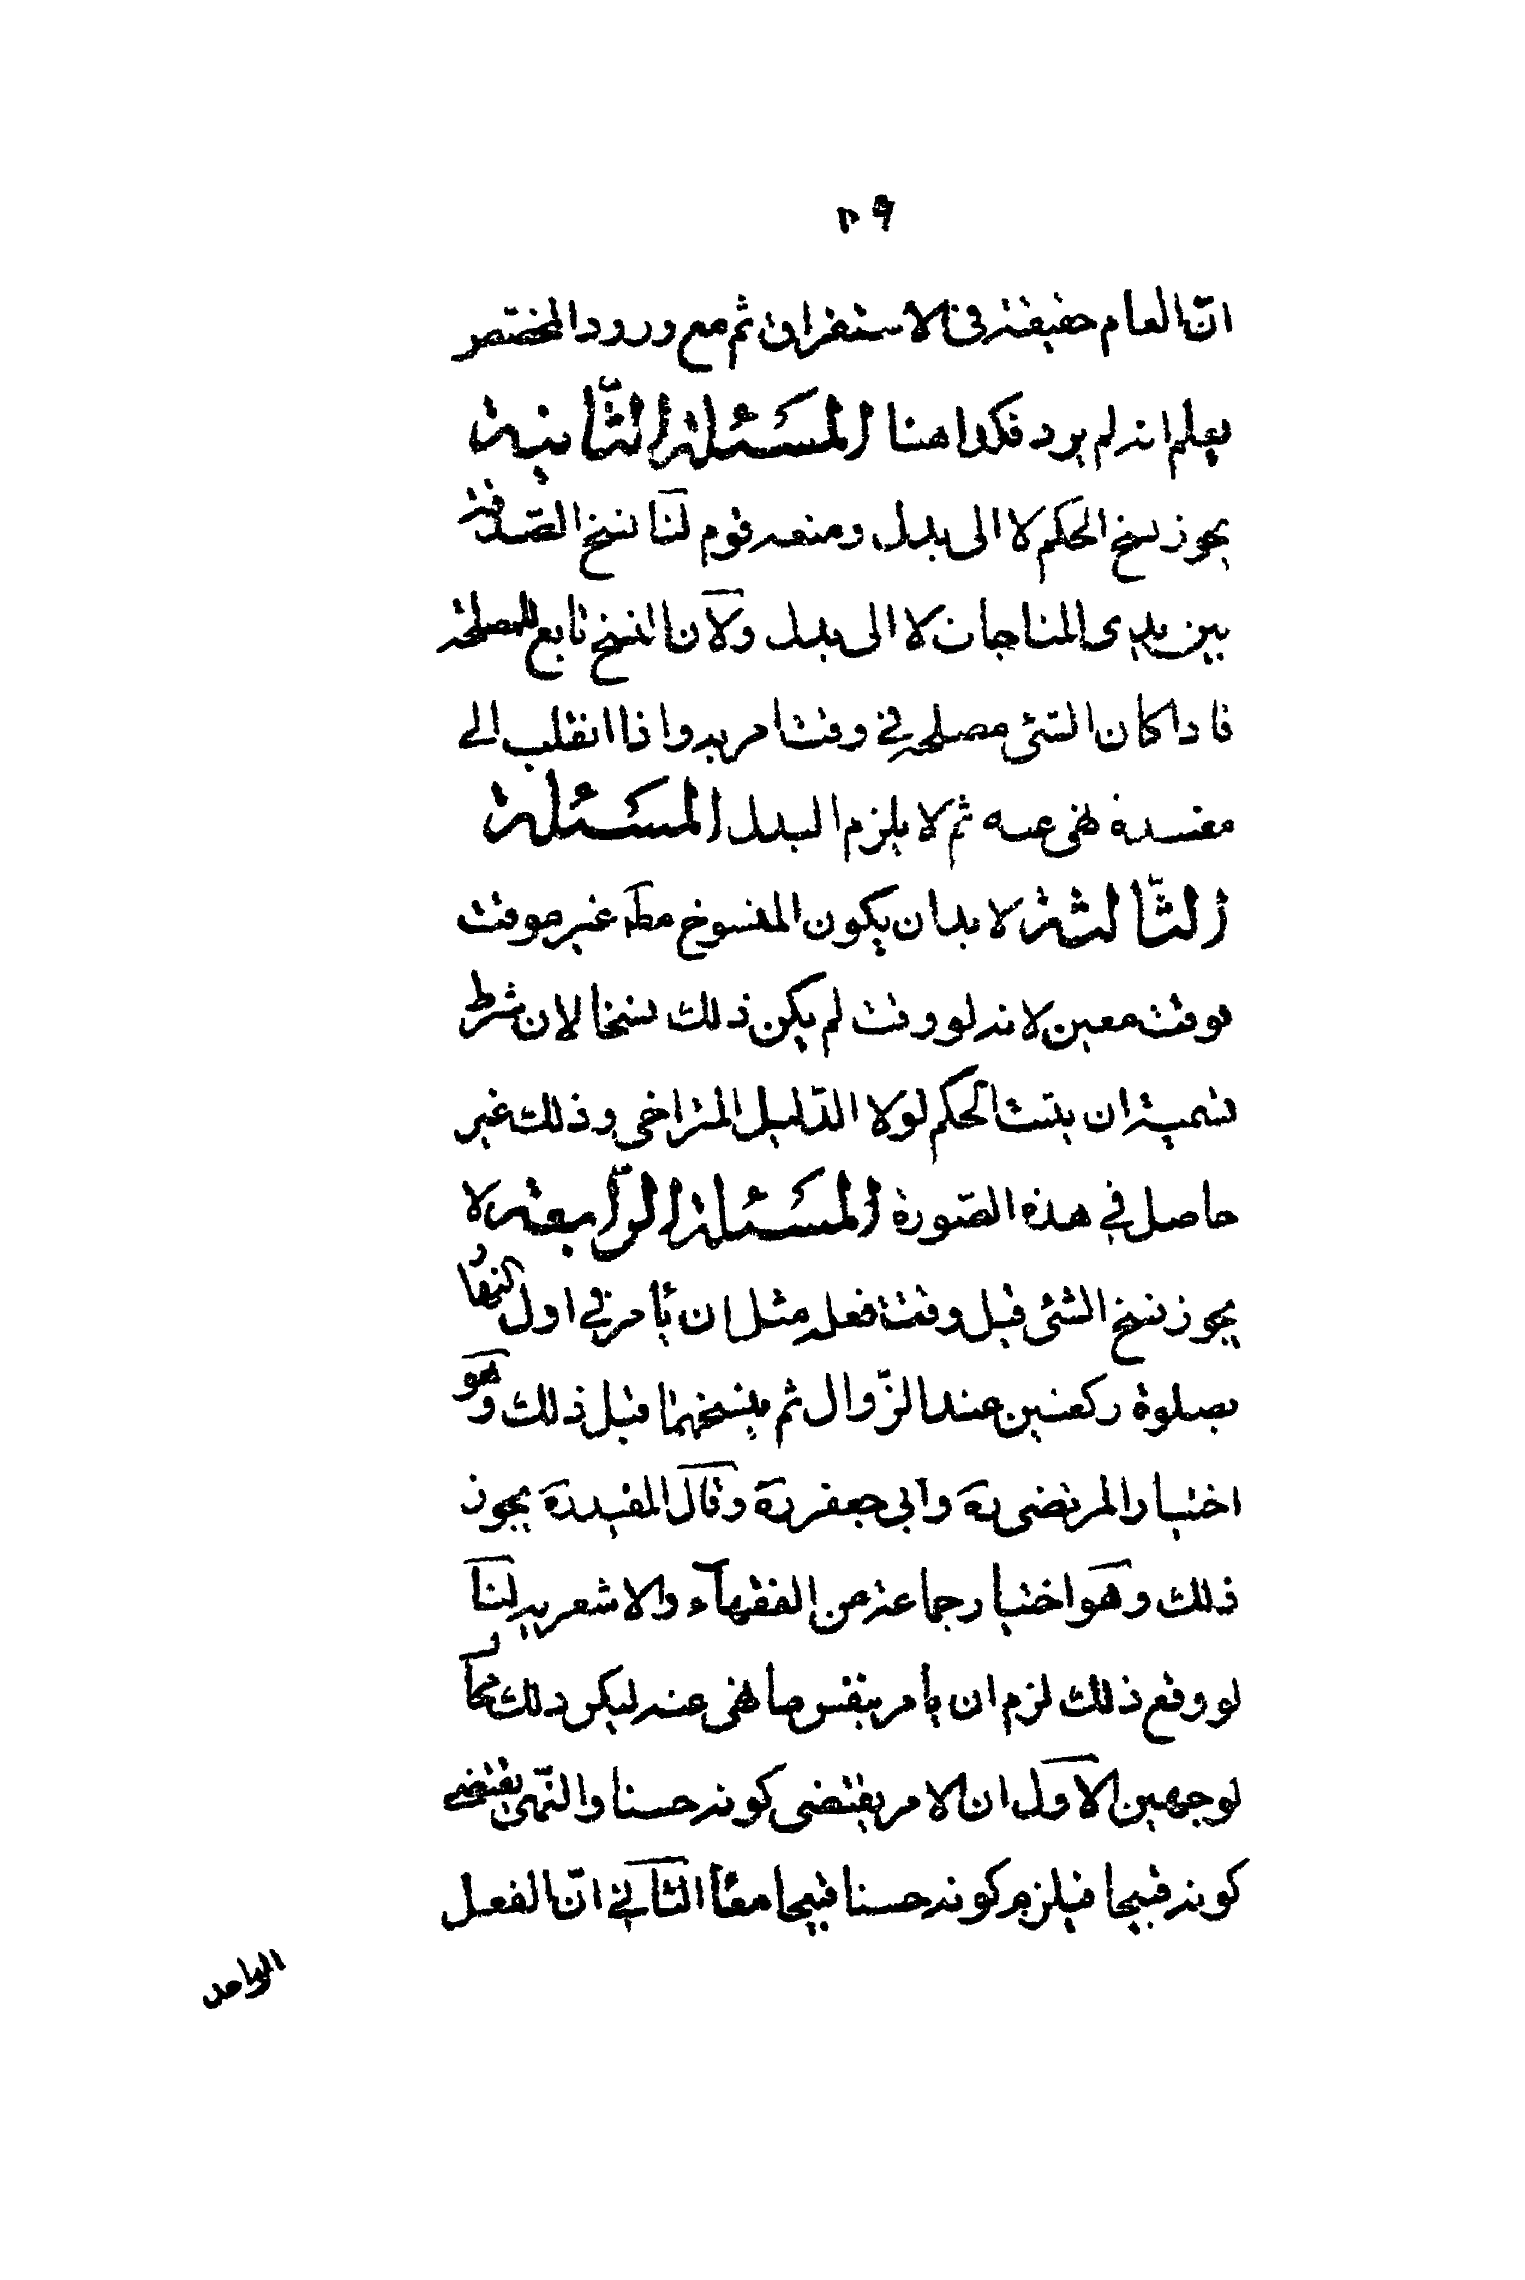 ٩٣
ان العام حقيقة فى الاستغراق ثم مع ورود المخصص
يعلم انه لم يرد فكذا هنا المسئلة الثّانية
يجوز نسخ الحكم لا الى بدل ومنعه قوم لنا نسخ الصّدقة
بين يدى المناجات لا الى بدل ولان النسخ تابع للمصلحة
فاذا كان الشئ مصلحة في وقت امر به واذا انقلب الى
مفسدة نهى عنه ثم لا يلزم البدل المسئلة
الثّالثة لا بد ان يكون المنسوخ مط غير موقت
بوقت معين لانه لو وقت لم يكن ذلك نسخا لان شرط
تسميته ان يثبت الحكم لولا الدّليل المتراخى وذلك غير
حاصل في هذه الصّورة المسئلة الرّابعة لا
يجوز نسخ الشئ قبل وقت فعله مثل ان يأمر في اول النهار
بصلوة ركعتين عند الزّوال ثم ينسخهما قبل ذلك وهو
اختيار المرتضى ره وابى جعفر ره وقال المفيد ره يجوز
ذلك وهو اختيار جماعة من الفقهآء والاشعريه لنا
لو وقع ذلك لزم ان يأمر بنفس ما نهى عنه لكن ذلك مح
لوجهين الاول ان الامر يقتضى كونه حسنا والنّهى يقتضى
كونه قبيحا فيلزم كونه حسنا قبيحا معًا الثانى انّ الفعل
الواحد